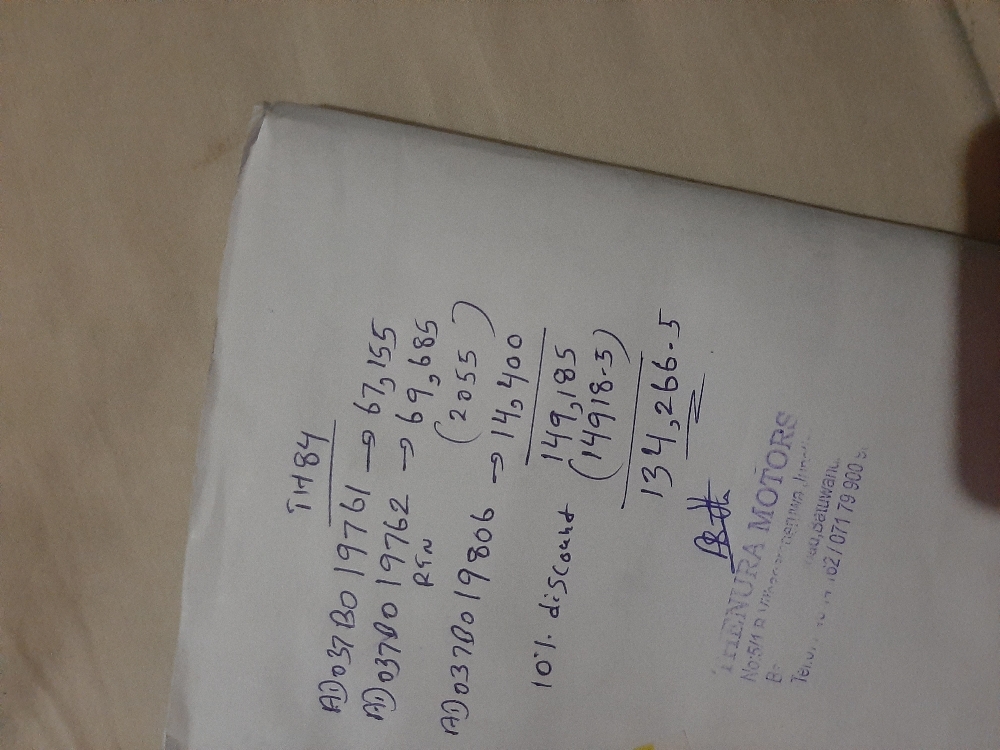 TH84
AD037B019761 → 67,155
AD037B019762 → 69,685
RTN (2055)
AD037B019806 → 14,400
149,185
10% discount (14918.5)
134,266.5
THENURA MOTORS
No:5/1
02 / 071 79 900